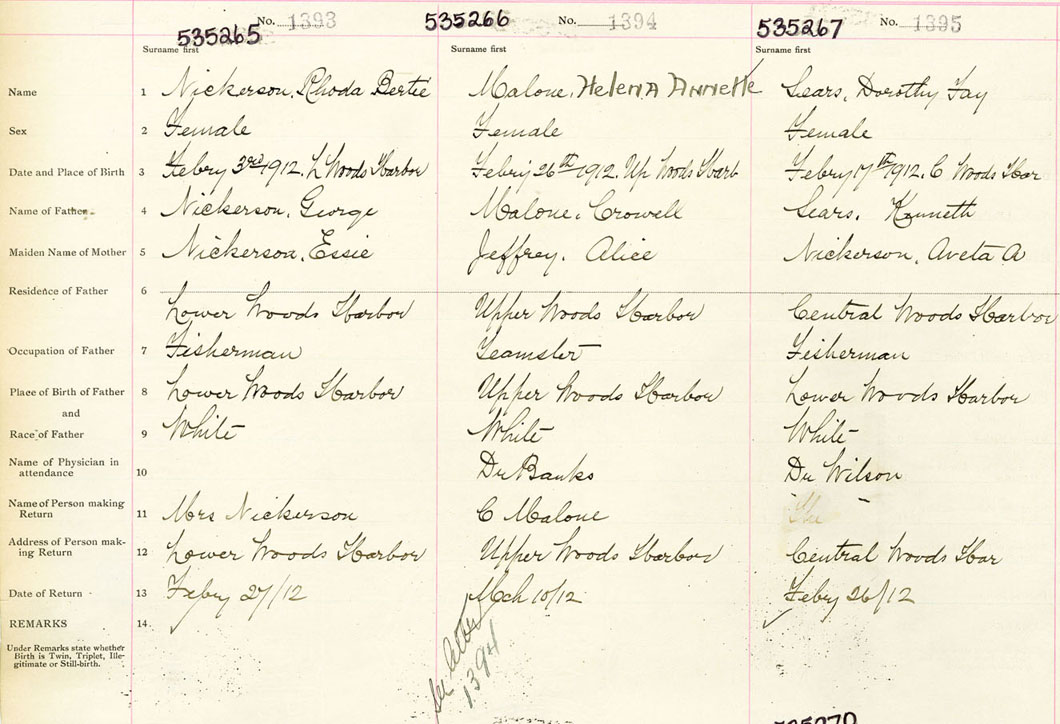 535265 No. 1393 535266 No. 1394 535267 No. 1395
Surname first Surname first Surname first
Name 1 Nickerson, Rhoda Bertie Malone, Helena Annette Sears, Dorothy Fay
Sex 2 Female Female Female
Date and Place of Birth 3 Febry 3rd 1912. L Woods Harbor Febry 26th 1912. Up Woods Harb Febry 17th 1912. C Woods Har
Name of Father 4 Nickerson, George Malone, Crowell Sears, Kenneth
Maiden Name of Mother 5 Nickerson, Essie Jeffrey, Alice Nickerson, Aveta A
Residence of Father 6
Lower Woods Harbor Upper Woods Harbor Central Woods Harbor
Occupation of Father 7 Fisherman Teamster Fisherman
Place of Birth of Father 8 Lower Woods Harbor Upper Woods Harbor Lower Woods Harbor
and
Race of Father 9 White White White
Name of Physician in
attendance 10 Dr Banks Dr Wilson
Name of Person making
Return 11 Mrs Nickerson C Malone
Address of Person mak-
ing Return 12 Lower Woods Harbor Upper Woods Harbor Central Woods Har
Date of Return 13 Febry 27/12 Mch 10/12 Febry 26/12
REMARKS 14
Under Remarks state whether
Birth is Twin, Triplet, Ille-
gitimate or Still-birth.
See letter
1394